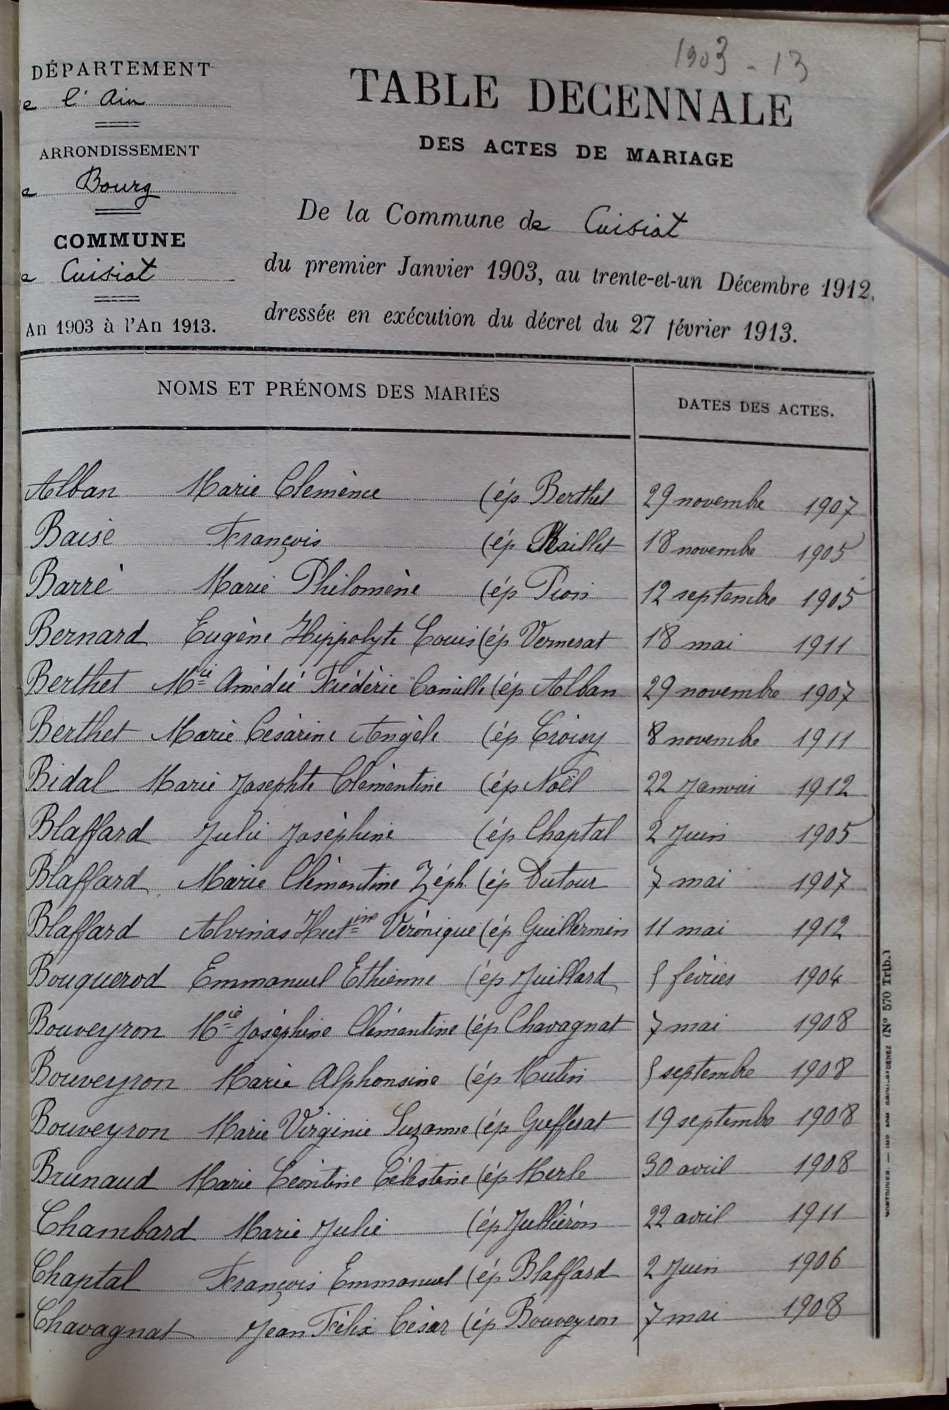 1903 - 13
DÉPARTEMENT
e l'Ain
ARRONDISSEMENT
e Bourg
COMMUNE
e Cuisiat
An 1903 à l'An 1913.
TABLE DECENNALE
DES ACTES DE MARIAGE
De la Commune de Cuisiat
du premier Janvier 1903, au trente-et-un Décembre 1912,
dressée en exécution du décret du 27 février 1913.
NOMS ET PRÉNOMS DES MARIÉS DATES DES ACTES.
Alban Marie Clémence (ép Berthet 29 novembre 1907
Baise François (ép Maillet 18 novembre 1905
Barré Marie Philomène (ép Pion 12 septembre 1905
Bernard Eugène Hippolyte Louis (ép Vernerat 18 mai 1911
Berthet Mie Amédée Frédéric Camille (ép Alban 29 novembre 1907
Berthet Marie Césarine Angèle (ép Croisy 8 novembre 1911
Bidal Marie Josephte Clémentine (ép Noël 22 Janvier 1912
Blaffard Julie Joséphine (ép Chaptal 2 Juin 1905
Blaffard Marie Clémentine Zéph. (ép Dutour 7 mai 1907
Blaffard Véronique (ép Guillermin 11 mai 1912
Bouquerod Emmanuel Ethienne (ép Juillard 5 février 1904
Bouveyron Mie Joséphine Clémentine (ép Chavagnat 7 mai 1908
Bouveyron Marie Alphonsine (ép Mutin 5 septembre 1908
Bouveyron Marie Virginie Suzanne (ép Guefferat 19 septembre 1908
Brunaud Marie Léontine Célestine (ép Merle 30 avril 1908
Chambard Marie Julie (ép Julliéron 22 avril 1911
Chaptal François Emmanuel (ép Blaffard 2 Juin 1906
Chavagnat Jean Félix César (ép Bouveyron 7 mai 1908
(N° 570 Trib.)